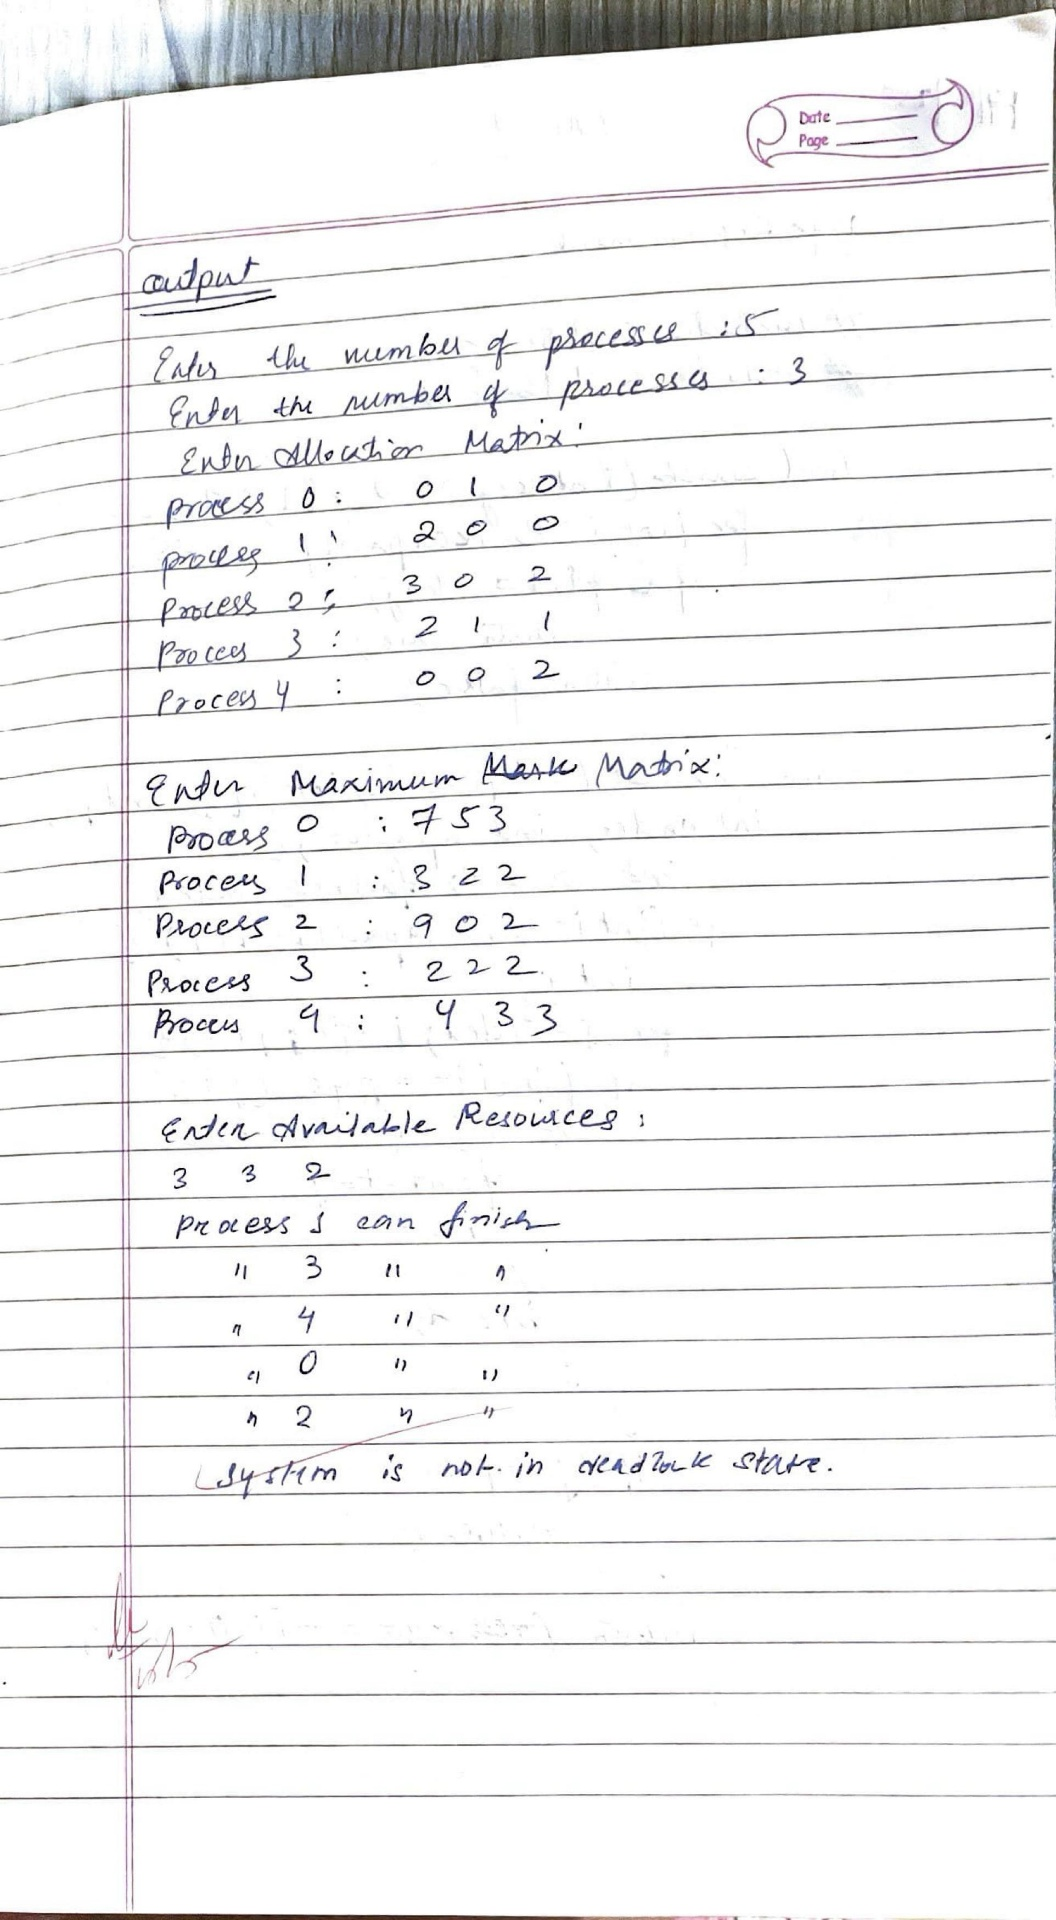 Date
Page
output
Enter the number of processes : 5
Enter the number of processes : 3
Enter Allocation Matrix:
process 0 : 0 1 0
process 1 : 2 0 0
Process 2 : 3 0 2
Process 3 : 2 1 1
Process 4 : 0 0 2
Enter Maximum Matrix:
Process 0 : 7 5 3
Process 1 : 3 2 2
Process 2 : 9 0 2
Process 3 : 2 2 2
Process 4 : 4 3 3
Enter Available Resources :
3 3 2
process 1 can finish
" 3 " "
" 4 " "
" 0 " "
" 2 " "
System is not in deadlock state.